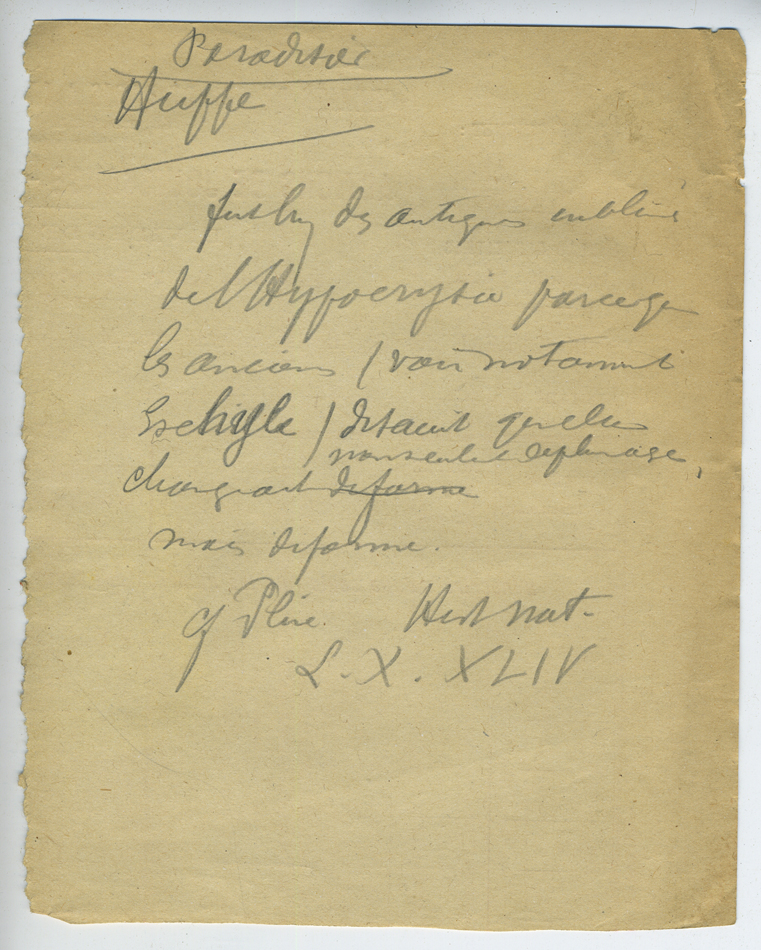 Paradisier
Huppe
fut chez des antiques emblème
de l'Hypocrysie parce que
les anciens / voir notamment
Eschyle / disaient qu'elle
non seulement de plumage,
changeait de forme
mais de forme.
cf Pline. Hist nat.
L. X. XLIV